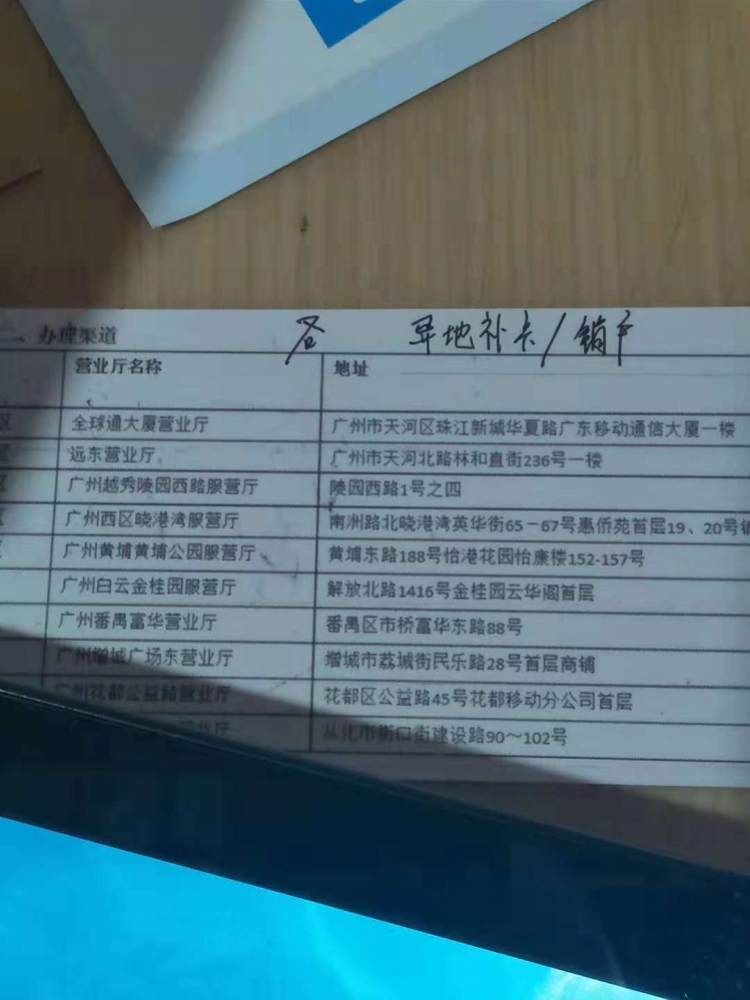 二、办理渠道 异地补卡/销户
营业厅名称 地址
区 全球通大厦营业厅 广州市天河区珠江新城华夏路广东移动通信大厦一楼
区 远东营业厅 广州市天河北路林和直街236号一楼
区 广州越秀陵园西路服营厅 陵园西路1号之四
区 广州西区晓港湾服营厅 南洲路北晓港湾英华街65-67号惠侨苑首层19、20号铺
区 广州黄埔黄埔公园服营厅 黄埔东路188号怡港花园怡康楼152-157号
广州白云金桂园服营厅 解放北路1416号金桂园云华阁首层
广州番禺富华营业厅 番禺区市桥富华东路88号
广州增城广场东营业厅 增城市荔城街民乐路28号首层商铺
广州花都公益路营业厅 花都区公益路45号花都移动分公司首层
从化市街口街建设路90～102号